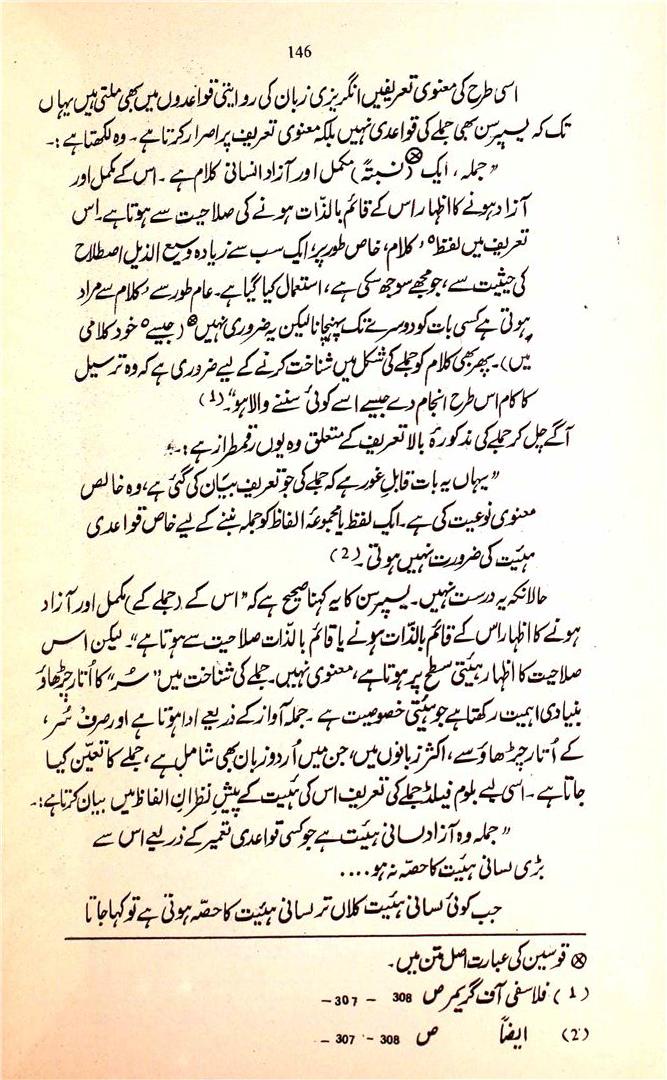 146
اسی طرح کی معنوی تعریفیں انگریزی زبان کی روایتی قواعدوں میں بھی ملتی ہیں یہاں
تک کہ یسپرسن بھی جملے کی قواعدی نہیں بلکہ معنوی تعریف پر اصرار کرتا ہے۔ وہ لکھتا ہے :۔
”جملہ، ایک ⊗(نسبتہً) مکمل اور آزاد انسانی کلام ہے۔ اس کے مکمل اور
آزاد ہونے کا اظہار اس کے قائم بالذّات ہونے کی صلاحیت سے ہوتا ہے۔ اس
تعریف میں لفظ ’کلام‘ خاص طور پر، ایک سب سے زیادہ وسیع الذیل اصطلاح
کی حیثیت سے، جو مجھے سوجھ سکی ہے، استعمال کیا گیا ہے۔ عام طور سے ’کلام‘ سے مراد
ہوتی ہے کسی بات کو دوسرے تک پہنچانا لیکن یہ ضروری نہیں ⊗(جیسے ’خود کلامی‘
میں)۔ پھر بھی کلام کو جملے کی شکل میں شناخت کرنے کے لیے ضروری ہے کہ وہ ترسیل
کا کام اس طرح انجام دے جیسے اسے کوئی سننے والا ہو“۔ (1)
آگے چل کر جملے کی مذکورۂ بالا تعریف کے متعلق وہ یوں رقمطراز ہے :۔
”یہاں یہ بات قابلِ غور ہے کہ جملے کی جو تعریف بیان کی گئی ہے، وہ خالص
معنوی نوعیت کی ہے۔ ایک لفظ یا مجموعۂ الفاظ کو جملہ بننے کے لیے خاص قواعدی
ہیئت کی ضرورت نہیں ہوتی۔ (2)
حالانکہ یہ درست نہیں۔ یسپرسن کا یہ کہنا صحیح ہے کہ ”اس کے (جملے کے) مکمل اور آزاد
ہونے کا اظہار اس کے قائم بالذات ہونے یا قائم بالذّات صلاحیت سے ہوتا ہے“۔ لیکن اس
صلاحیت کا اظہار ہیئتی سطح پر ہوتا ہے، معنوی نہیں۔ جملے کی شناخت میں ”سُر“ کا اُتار چڑھاؤ
بنیادی اہمیت رکھتا ہے جو ہیئتی خصوصیت ہے۔ جملہ آواز کے ذریعے ادا ہوتا ہے اور صرف سُر،
کے اُتار چڑھاؤ سے، اکثر زبانوں میں، جن میں اُردو زبان بھی شامل ہے، جملے کا تعیّن کیا
جاتا ہے۔ اسی لیے بلوم فیلڈ جملے کی تعریف اس کی ہیئت کے پیشِ نظر ان الفاظ میں بیان کرتا ہے :۔
”جملہ وہ آزاد لسانی ہیئت ہے جو کسی قواعدی تعمیر کے ذریعے اس سے
بڑی لسانی ہیئت کا حصّہ نہ ہو....
جب کوئی لسانی ہیئت کلاں تر لسانی ہیئت کا حصّہ ہوتی ہے تو کہا جاتا
⊗ قوسین کی عبارت اصل متن میں۔
(1) فلاسفی آف گریمر ص 308 - 307 -
(2) ایضاً ص 308 - 307 -